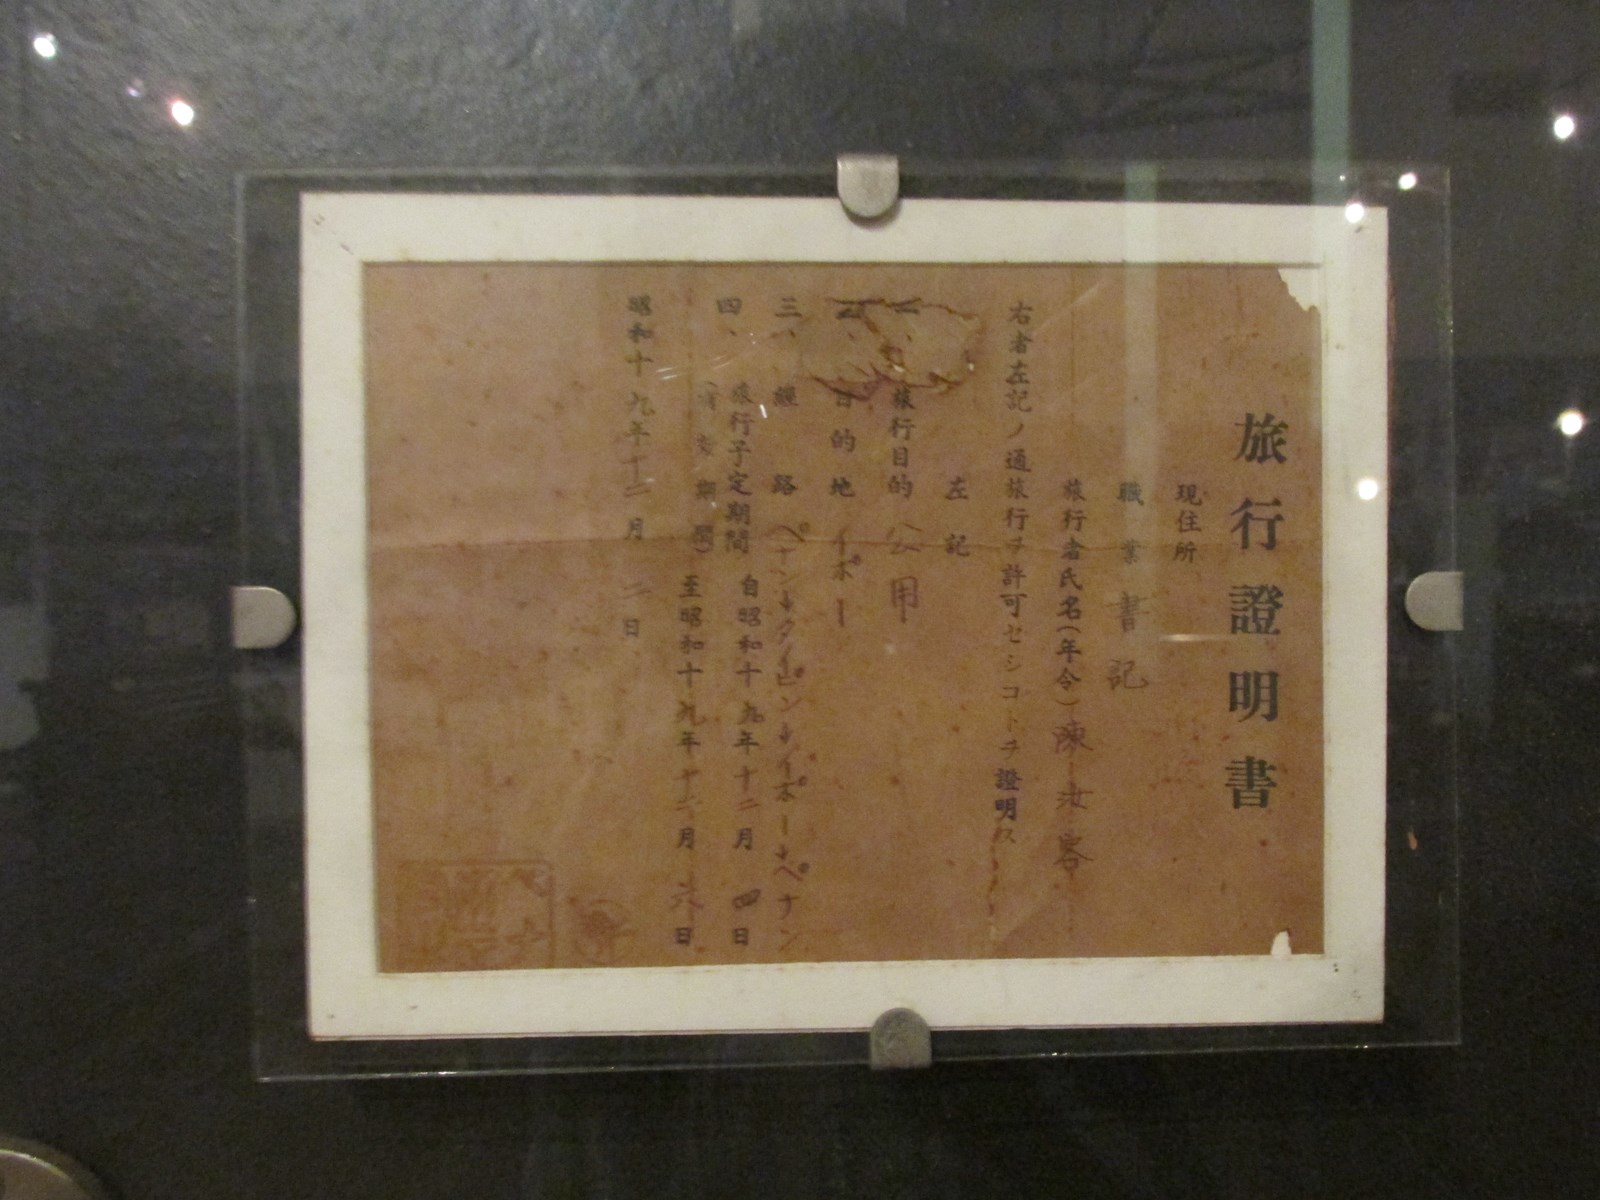 旅行證明書
現住所
職業 書記
旅行者氏名(年令) 陳汝容
右者左記ノ通旅行ヲ許可セシコトヲ證明ス
左記
一、旅行目的 公用
二、目的地 イポー
三、經路 ペナン タイピン イポー ペナン
四、旅行予定期間 自昭和十九年十二月四日
(有效期間) 至昭和十九年十二月六日
昭和十九年十二月二日